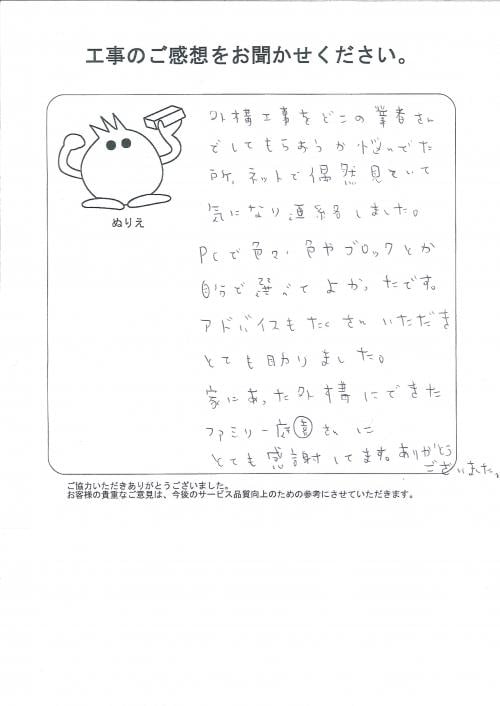 工事のご感想をお聞かせください。
外構工事をどこの業者さん
でしてもらおうか悩んでた
所、ネットで偶然見ていて
気になり連絡しました。
ぬりえ
PCで色々、色やブロックとか
自分で選べてよかったです。
アドバイスもたくさんいただき
とても助かりました。
家にあった外構にできた
ファミリー庭園さんに
とても感謝してます。ありがとう
ございました。
ご協力いただきありがとうございました。
お客様の貴重なご意見は、今後のサービス品質向上のための参考にさせていただきます。